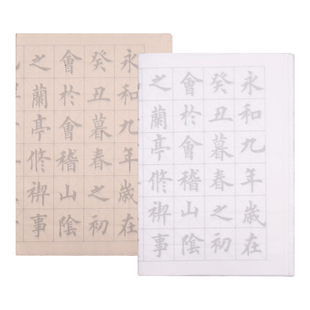 永和九年歲在
癸丑暮春之初
會於會稽山陰
之蘭亭脩禊事
永和九年歲在
癸丑暮春之初
會於會稽山陰
之蘭亭脩禊事